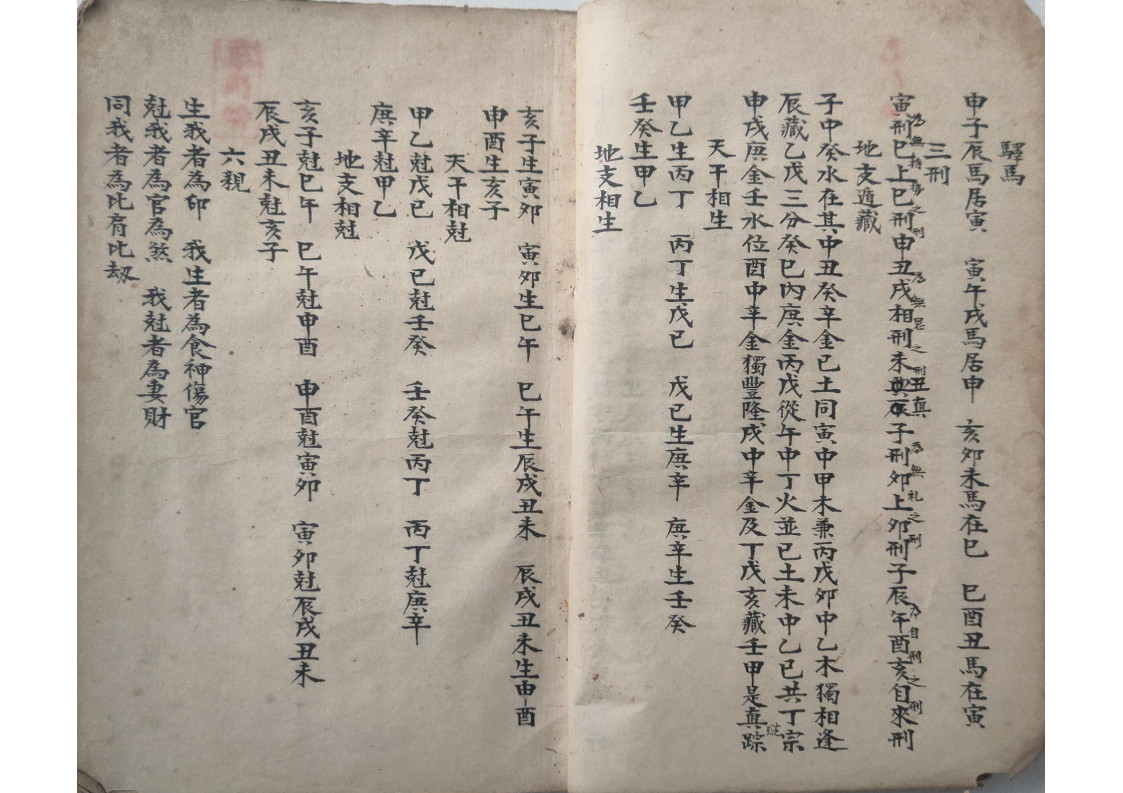 驛馬
申子辰馬居寅　寅午戌馬居申　亥卯未馬在巳　巳酉丑馬在寅
三刑
寅刑巳上巳刑申丑戌相刑未與辰子刑卯上卯刑子辰午酉亥自來刑
為無恃勢之刑　為無恩之刑　丑真　為無礼之刑　為自刑之刑
地支遁藏
子中癸水在其中丑癸辛金己土同寅中甲木兼丙戊卯中乙木獨相逢
辰藏乙戊三分癸巳內庚金丙戊從午中丁火並己土未中乙己共丁宗
申戌庚金壬水位酉中辛金獨豐隆戌中辛金及丁戊亥藏壬甲是真踪
天干相生
甲乙生丙丁　丙丁生戊己　戊己生庚辛　庚辛生壬癸
壬癸生甲乙
地支相生
亥子生寅卯　寅卯生巳午　巳午生辰戌丑未　辰戌丑未生申酉
申酉生亥子
天干相尅
甲乙尅戊己　戊己尅壬癸　壬癸尅丙丁　丙丁尅庚辛
庚辛尅甲乙
地支相尅
亥子尅巳午　巳午尅申酉　申酉尅寅卯　寅卯尅辰戌丑未
辰戌丑未尅亥子
六親
生我者為印　我生者為食神傷官
尅我者為官為煞　我尅者為妻財
同我者為比肩比劫